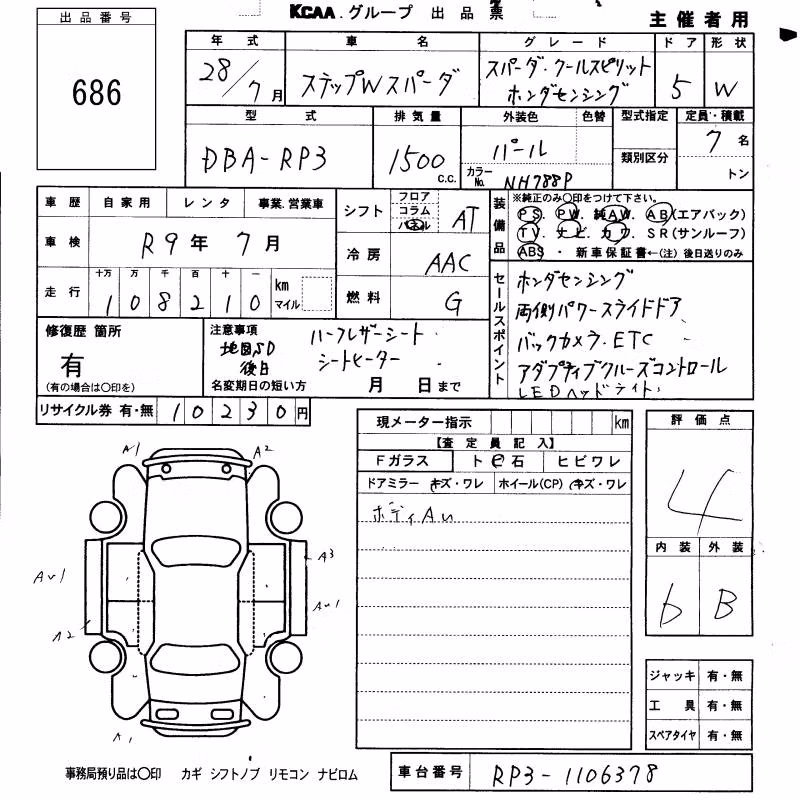 出品番号
686
KCAA.グループ 出品票
主催者用
年式 車名 グレード ドア 形状
28/7月 ステップWスパーダ スパーダ・クールスピリット ホンダセンシング 5 W
型式 排気量 外装色 色替 型式指定 定員・積載
類別区分
DBA-RP3 1500 C.C. パール 7名
カラーNo. NH788P トン
車歴 自家用 レンタ 事業・営業車
車検 R9年7月
走行 十万 万 千 百 十 一 km マイル
108210
シフト フロア コラム パネル AT
冷房 AAC
燃料 G
装備品 ※純正のみ○印をつけて下さい。
PS. PW. 純AW. AB(エアバック)
TV. ナビ. カワ. SR(サンルーフ)
ABS・新車保証書←(注)後日送りのみ
セールスポイント
ホンダセンシング
両側パワースライドドア
バックカメラ. ETC
アダプティブクルーズコントロール
LEDヘッドライト.
修復歴 箇所
有
(有の場合は○印を)
注意事項 ハーフレザーシート
地図SD シートヒーター
後日
名変期日の短い方 月 日まで
リサイクル券 有・無 10230円
現メーター指示 km
【査定員記入】
Fガラス ト ビ 石 ヒビワレ
ドアミラー キズ・ワレ ホイール(CP) キズ・ワレ
ボディAu
評価点
4
内装 外装
b B
A1 A2
A3
Au1 Au1
A2
A1
ジャッキ 有・無
工具 有・無
スペアタイヤ 有・無
事務局預り品は○印 カギ シフトノブ リモコン ナビロム
車台番号 RP3-1106378